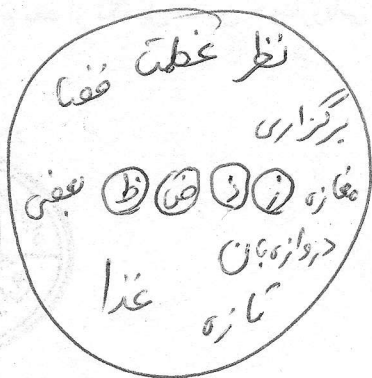 نظر عظمت فضا
برگزاری
مغازه ز ذ ض ظ بعضی
دروازه‌بان
غذا
تازه